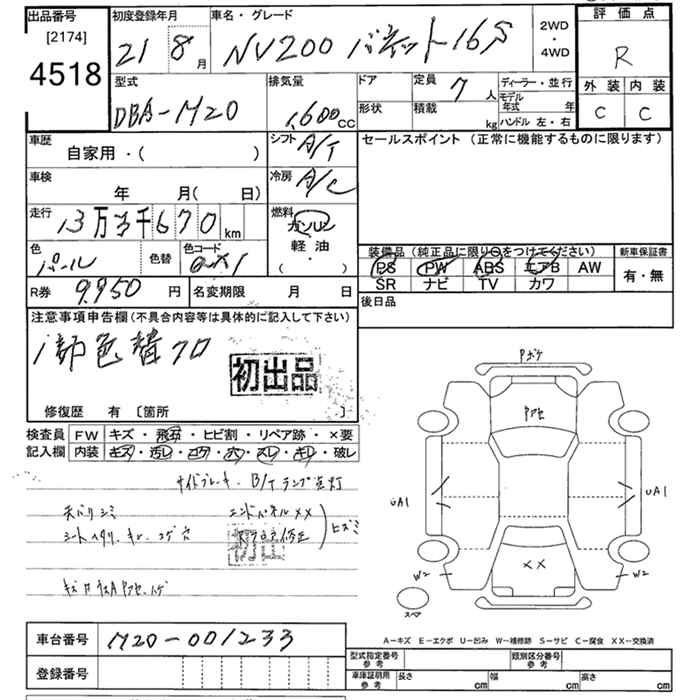 出品番号
[2174]
4518
初度登録年月
21 8月
車名・グレード
NV200 バネット16S
2WD
・
4WD
評価点
R
外装 内装
C C
型式
DBA-M20
排気量
1,600cc
ドア
形状
定員 7人
積載 kg
ディーラー・並行
モデル年式 年
ハンドル 左・右
車歴
自家用・( )
シフト A/T
セールスポイント (正常に機能するものに限ります)
車検
年 月( 日)
冷房 A/C
走行 13万3千670km
燃料
ガソリン
軽油
( ・ )
色 パール
色替
色コード
装備品(純正品に限り○をつけてください)
PS PW ABS エアB AW
SR ナビ TV カワ
新車保証書
有・無
R券 9,950円
名変期限 月 日
後日品
注意事項申告欄(不具合内容等は具体的に記入して下さい)
初出品
修復歴 有 [箇所 ]
検査員記入欄
FW キズ・飛石・ヒビ割・リペア跡・×要
内装 キズ・汚レ・コゲ・穴・スレ・キレ・破レ
サイドブレーキ、B/Tランプ点灯
天バリシミ
エンドパネルXX
シートヘタリ、キレ、コゲ穴
ヒズミ
初出
Pボケ
Pアセ
UA1
UA1
XX
W2
W2
スペア
A-キズ E-エクボ U-凹み W-補修跡 S-サビ C-腐食 XX-交換済
車台番号 M20-001233
登録番号
型式指定番号
参考
類別区分番号
参考
車庫証明用
参考
長さ cm
幅 cm
高さ cm